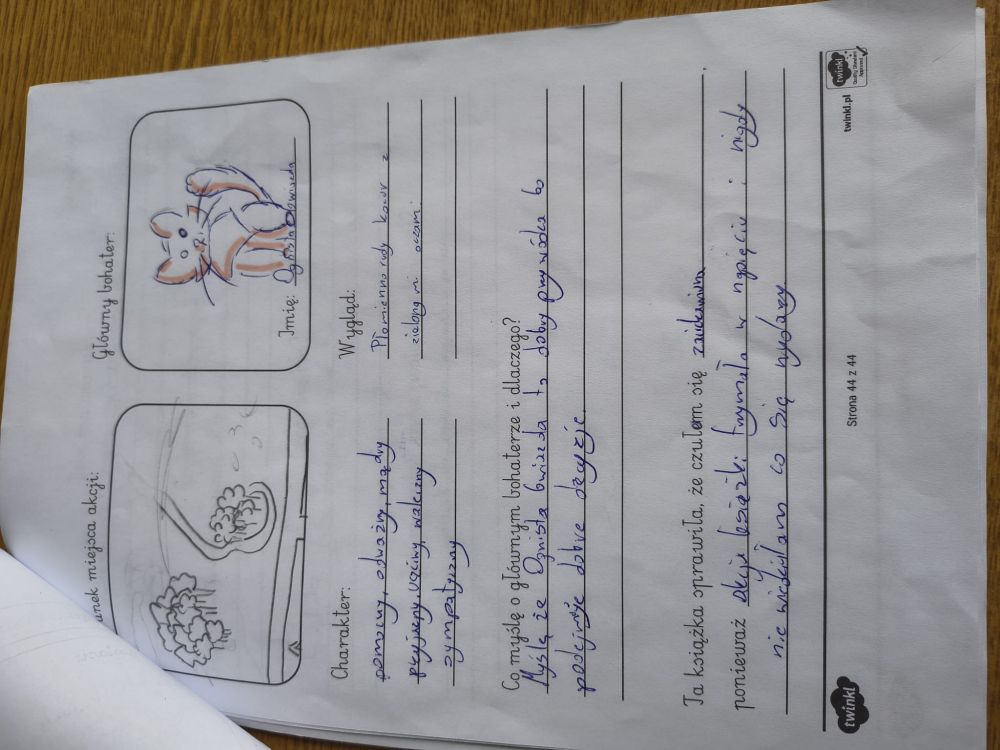 unek miejsca akcji:
Główny bohater:
Imię: Ognista Gwiazda
Charakter:
pomocny, odważny, mądry
przyjazny, uczciwy, waleczny
sympatyczny
Wygląd:
Płomienno rudy kocur z
zielonymi oczami.
Co myślę o głównym bohaterze i dlaczego?
Myślę że Ognista Gwiazda to dobry przywódca bo
podejmuje dobre decyzje.
Ta książka sprawiła, że czułam się
ponieważ akcja książki trzymała w napięciu i nigdy
nie wiedziałam co się wydarzy
twinkl
Strona 44 z 44
twinkl.pl
twinkl
Quality Standard
Approved